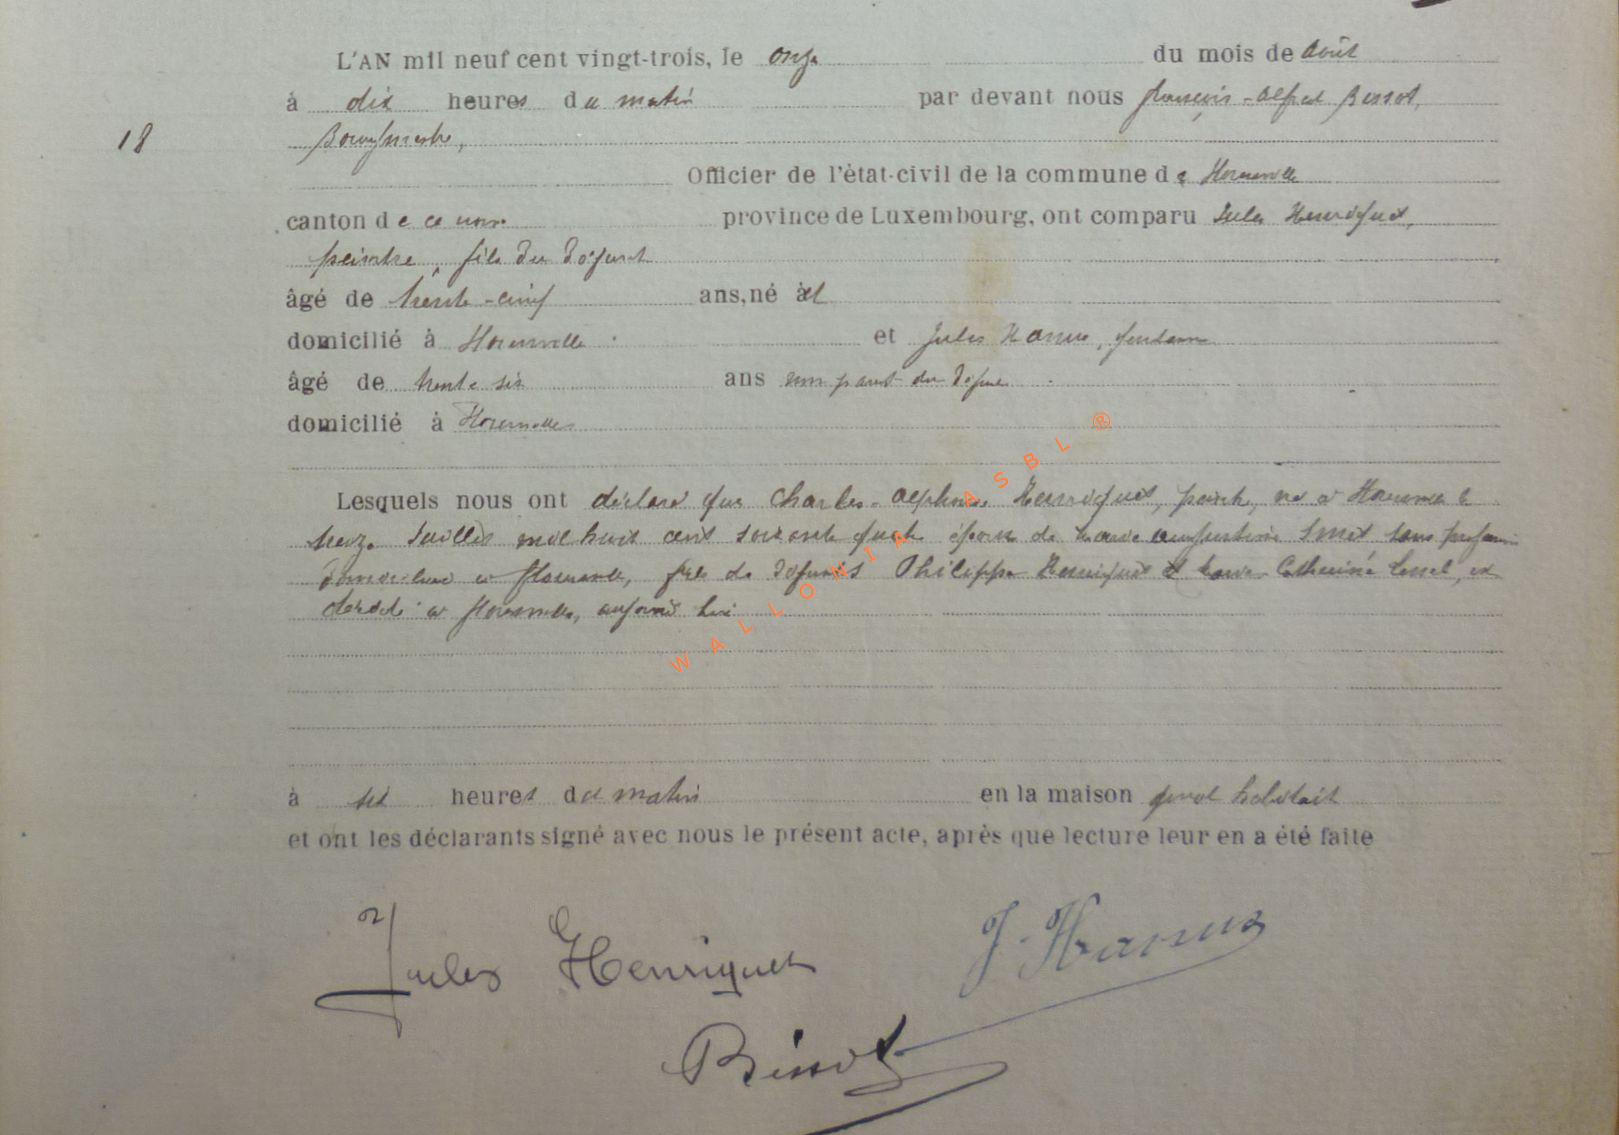 L'AN mil neuf cent vingt-trois, le onze du mois de Août
à dix heures du matin par devant nous François-Alfred Bissot,
18
Bourgmestre,
Officier de l'état-civil de la commune de
canton de ce nom province de Luxembourg, ont comparu Jules Henriquet,
peintre, fils du défunt
âgé de trente-cinq ans, né à et
domicilié à et Jules Hanus,
âgé de trente six ans non parent du défunt
domicilié à
Lesquels nous ont déclaré que Charles-Alphonse Henriquet, peintre, né à le
treize Juillet mil huit cent soixante quatre époux de Marie Augustine Smet sans profession
domiciliée à fils de défunts Philippe Henriquet et Marie Catherine est
décédé à aujourd'hui
WALLONIA ASBL ®
à six heures du matin en la maison qu'il habitait
et ont les déclarants signé avec nous le présent acte, après que lecture leur en a été faite
Jules Henriquet J. Hanus
Bissot